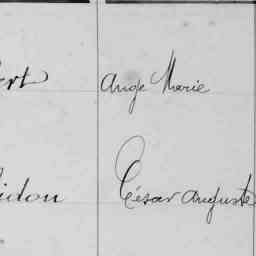 ert Ange Marie
idon César Auguste